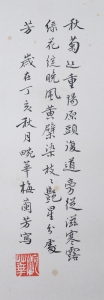 秋菊近重陽原頭復道旁從滋寒露
綠花綻晚風黃檗染枝枝艷星分處處
芳 歲在丁亥秋月畹華梅蘭芳寫